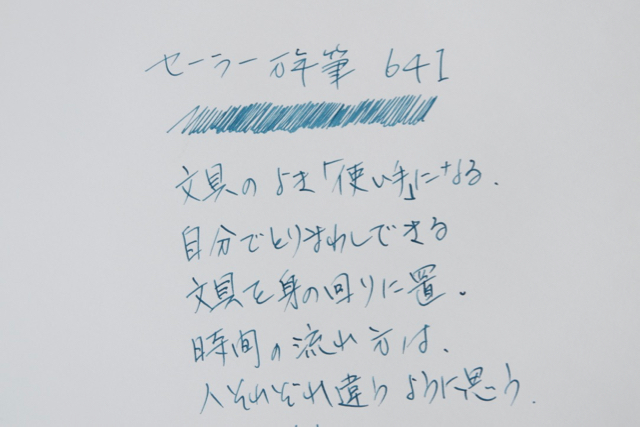 セーラー万年筆 641
文具のよき「使い手」になる.
自分でとりまわしできる
文具を身の回りに置.
時間の流れ方は.
人それぞれ違うように思う.